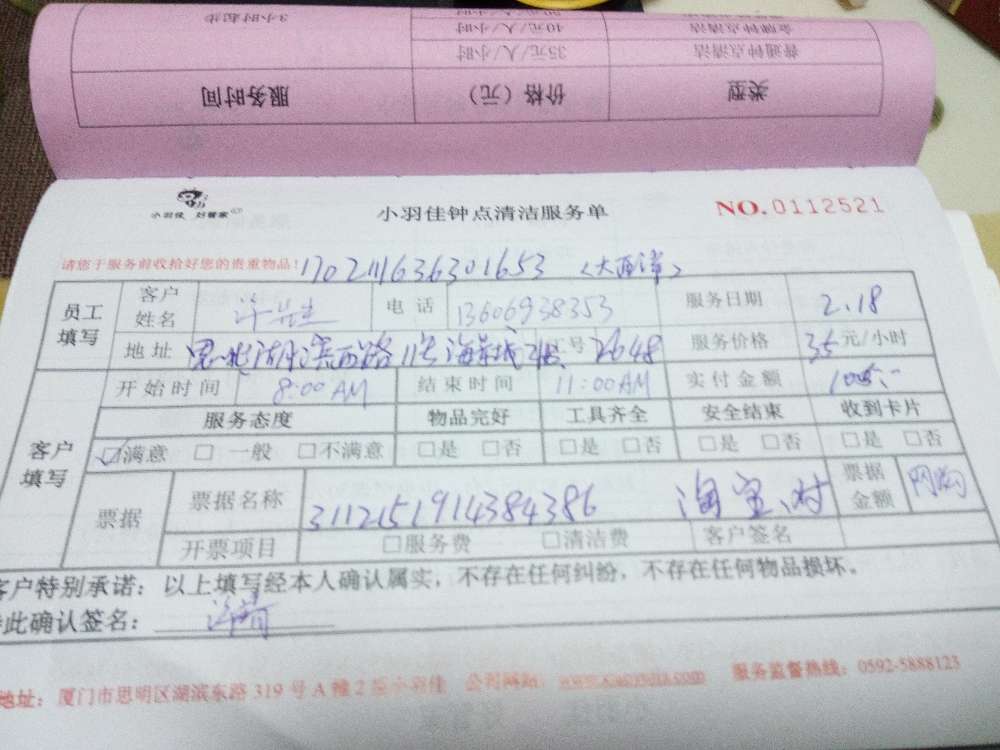 3小时起步
40元/人/小时
金牌钟点清洁
35元/人/小时
普通钟点清洁
服务时间
价格（元）
类型
小羽佳 好管家
小羽佳钟点清洁服务单
NO.0112521
请您于服务前收拾好您的贵重物品！
员工填写
客户姓名 许先生 电话 13606938353 服务日期 2.18
地址 号 2648 服务价格 35元/小时
客户填写
开始时间 8:00AM 结束时间 11:00AM 实付金额
服务态度 物品完好 工具齐全 安全结束 收到卡片
☑满意 □一般 □不满意 □是 □否 □是 □否 □是 □否 □是 □否
票据 票据名称 淘宝 票据金额 网购
开票项目 □服务费 □清洁费 客户签名
客户特别承诺：以上填写经本人确认属实，不存在任何纠纷，不存在任何物品损坏。
此确认签名：
地址：厦门市思明区湖滨东路319号A幢2层小羽佳 公司网站： 服务监督热线：0592-5888123